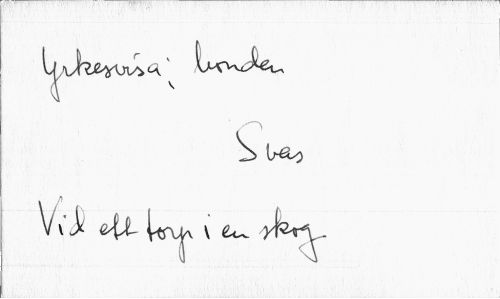 Yrkesvisa; bonden
Svas
Vid ett torp i en skog